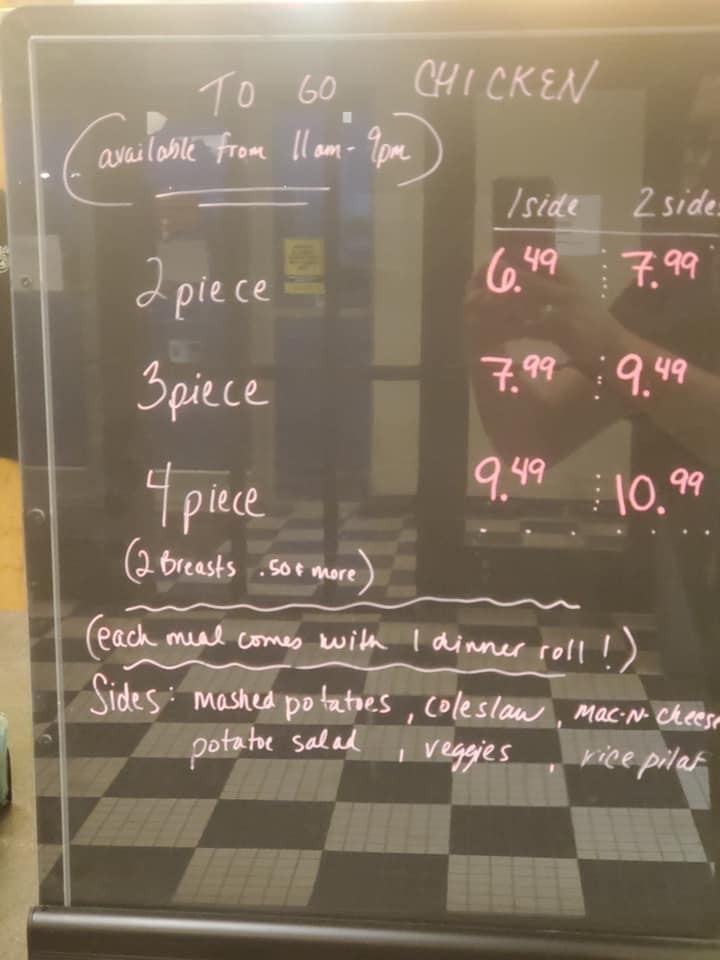 TO GO CHICKEN
(available from 11am - 9pm)
1 side 2 sides
2 piece 6.49 7.99
3 piece 7.99 9.49
4 piece 9.49 10.99
(2 Breasts .50¢ more)
(each meal comes with 1 dinner roll!)
Sides: mashed potatoes, coleslaw, mac-N-cheese
potatoe salad, veggies, rice pilaf